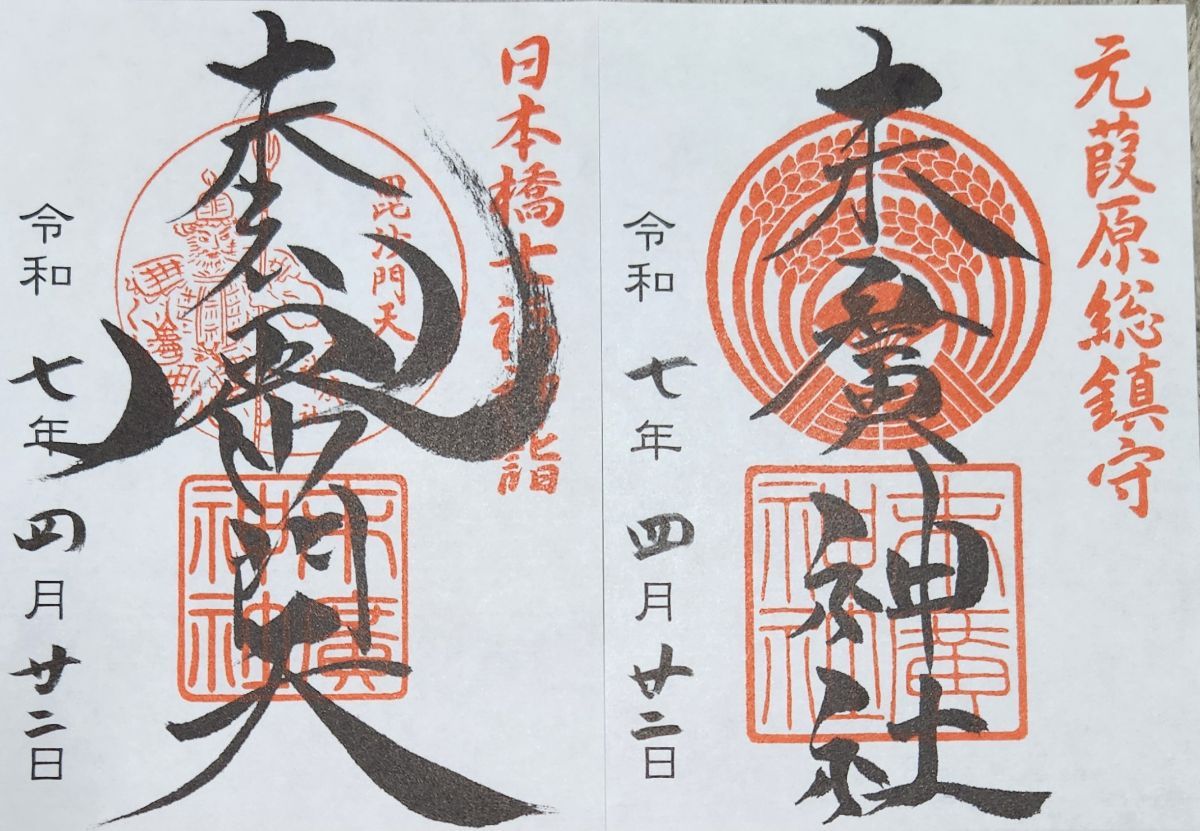 元葭原総鎮守
末廣神社
末廣神社
令和七年四月廿二日
日本橋七福神詣
毘沙門天
門天
末廣神社
令和七年四月廿二日